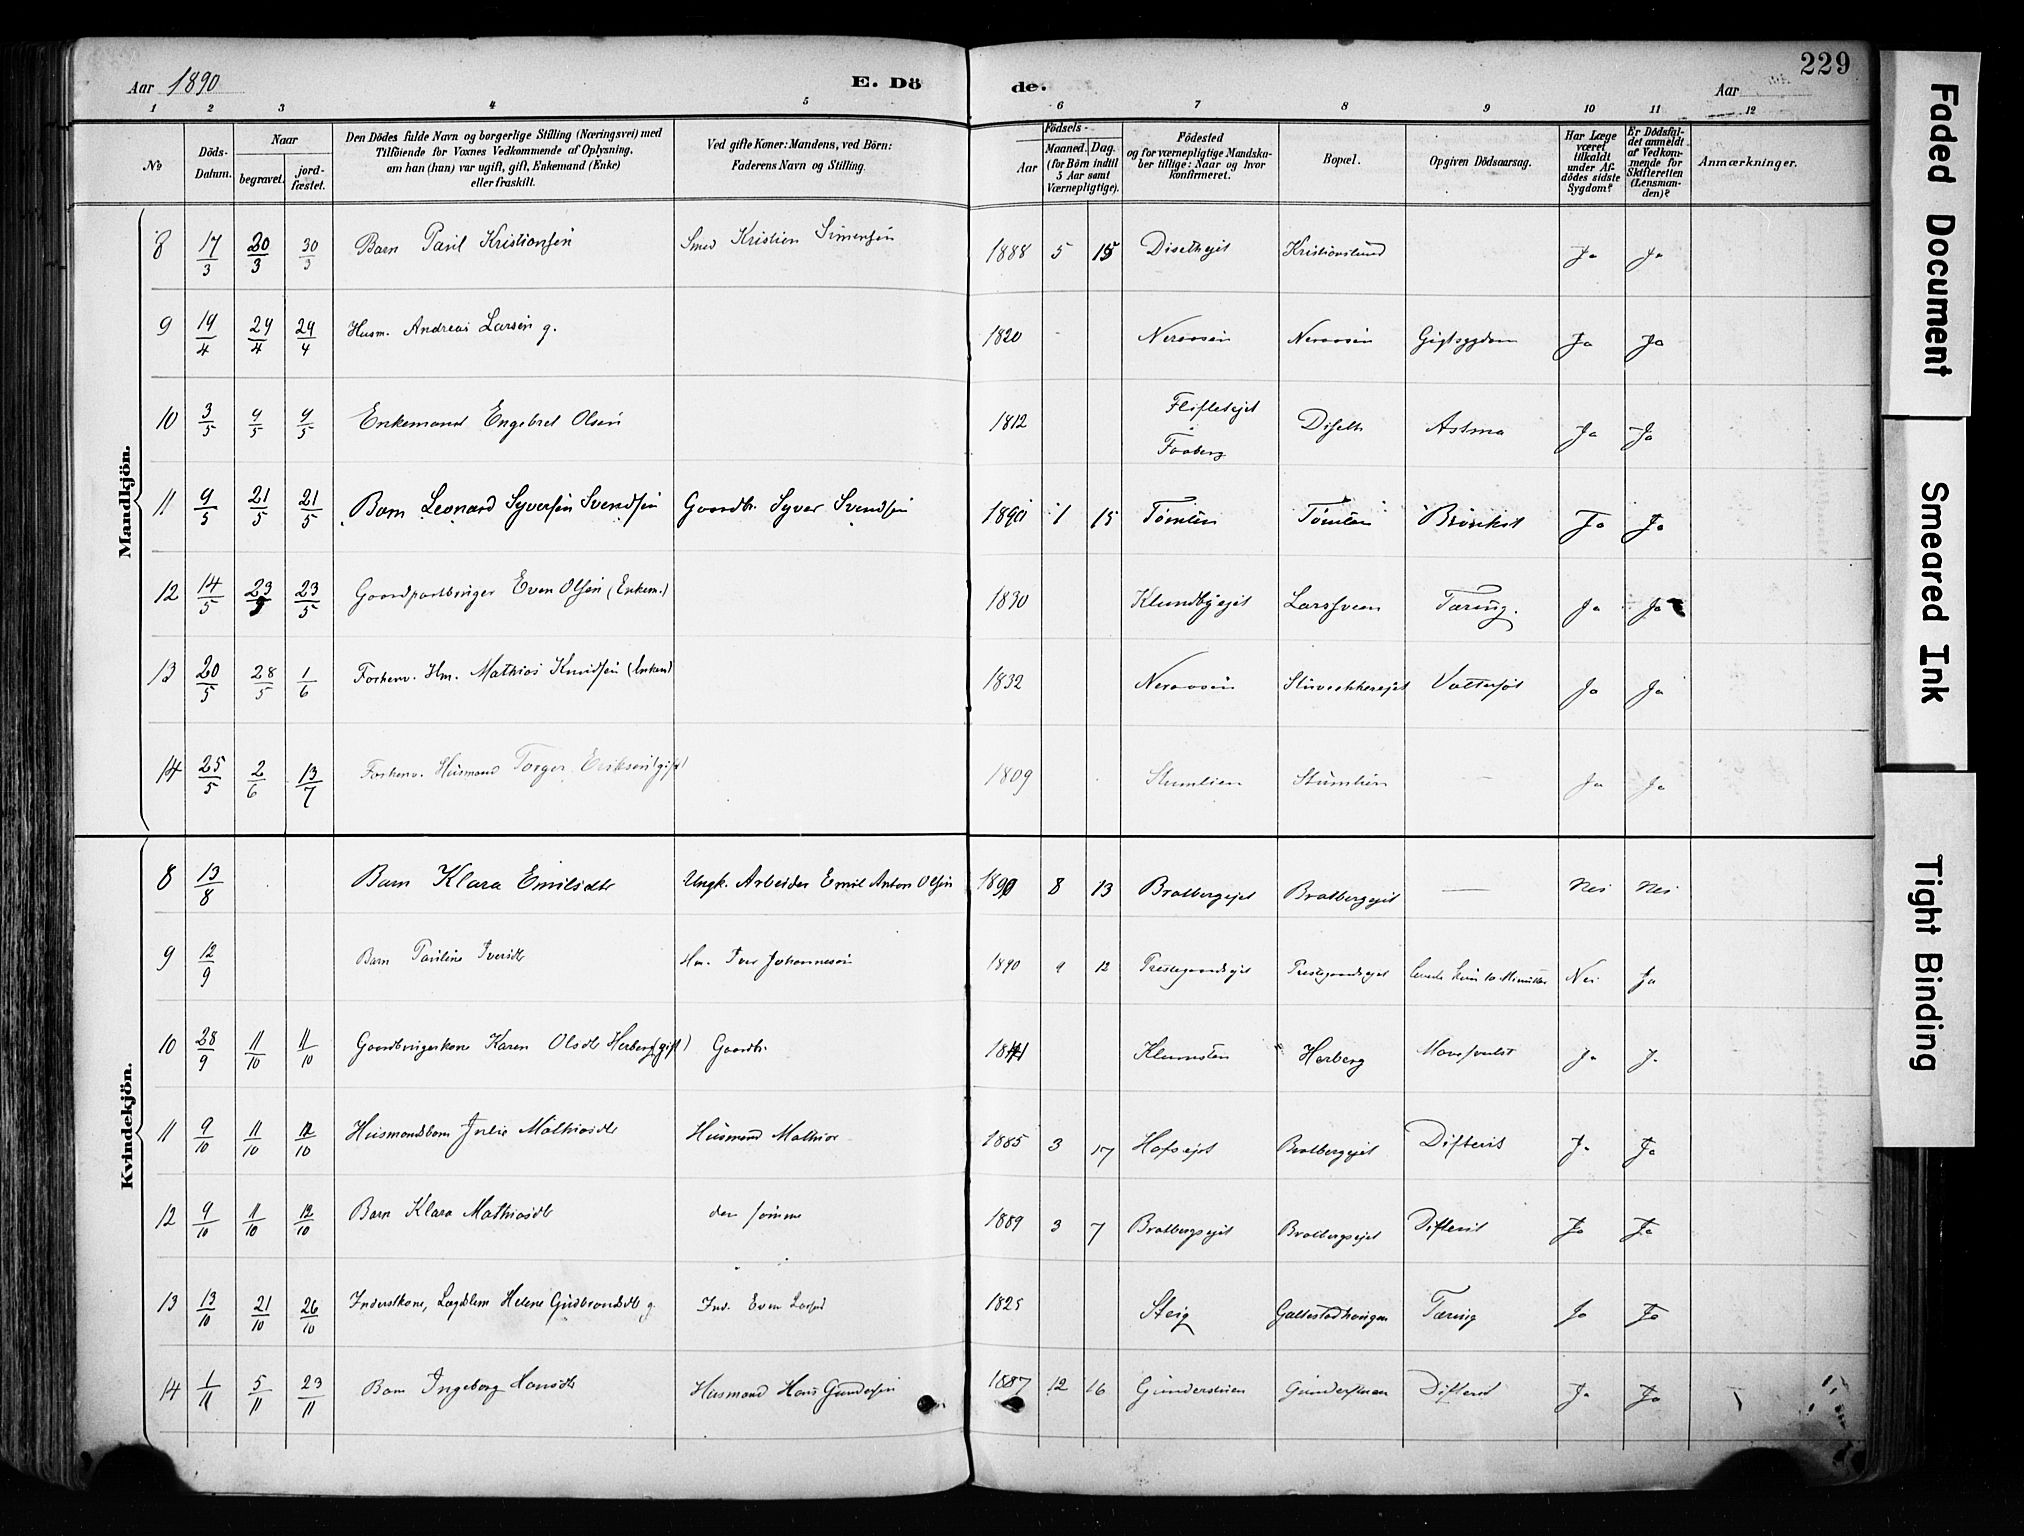 Aar 1890
E. Döde.
Aar
229
1 2 3 4 5 6 7 8 9 10 11 12
№
Döds-Datum.
Naar
begravet.
jordfæstet.
Den Dödes fulde Navn og borgerlige Stilling (Næringsvei) med Tilföiende for Voxnes Vedkommende af Oplysning, om han (hun) var ugift, gift, Enkemand (Enke) eller fraskilt.
Ved gifte Koner: Mandens, ved Börn: Faderens Navn og Stilling.
Födsels-
Aar
Maaned. Dag.
(for Börn indtil 5 Aar samt Værnepligtige).
Födested og for værnepligtige Mandskaber tillige: Naar og hvor konfirmeret.
Bopæl.
Opgiven Dödsaarsag.
Har Læge været tilkaldt under Afdödes sidste Sygdom?
Er Dödsfaldet anmeldt af Vedkommende for Skifteretten (Lensmanden)?
Anmærkninger.
Mandkjön.
8 17/3 20/3 30/3 Barn Paul Kristiansen Smed Kristian Simensen 1888 5 15 Disethejet Kristianslund Ja Ja
9 19/4 29/4 29/4 Husm. Andreas Larsen g. 1820 Neraasen Neraasen Gigtsygdom Ja Ja
10 3/5 9/5 9/5 Enkemand Engebret Olsen 1812 Faaberg Diseth Astma Ja Ja
11 9/5 21/5 21/5 Barn Leonard Syversen Svendsen Gaardbr. Syver Svendsen 1890 1 15 Tømten Tømten Ja Ja
12 14/5 23/5 23/5 Gaardpartbruger Even Olsen (Enkem.) 1830 Klundbyejet Larssveen Tæring. Ja Ja
13 20/5 28/5 1/6 Forhenv. Hm. Mathias Knudsen (Enkem) 1832 Neraasen Vattersot Ja Ja
14 25/5 2/6 13/7 Forhenv. Husmand Torger Eriksen (gift) 1809 Stumlien Stumlien Ja Ja
Kvindekjön.
8 13/8 Barn Klara Emilsdtr Ungk. Arbeider Emil Anton Olsen 1890 8 13 Bratbergejet Bratbergejet Nei Nei
9 12/9 Barn Pauline Iversdtr Hm. Iver Johannesen 1890 9 12 Prestegaardsejet Prestegaardsejet levede kun 10 Minutter Nei Ja
10 28/9 11/10 11/10 Gaardbrugerkone Karen Olsdtr Herberg (gift) Gaardbr. Klumsten Herberg Mavesvulst Ja Ja
11 9/10 11/10 12/10 Husmandsbarn Julie Mathiasdtr Husmand Mathias 1885 3 17 Hofsejet Bratbergejet Difterit Ja Ja
12 9/10 11/10 12/10 Barn Klara Mathiasdtr den samme 1889 3 7 Bratbergsejet Bratbergsejet Difterit Ja Ja
13 13/10 21/10 26/10 Inderstkone, Lægdslem Helene Gudbrandsdtr g. Ind. Even Larsen 1825 Steig Tæring Ja Ja
14 1/11 5/11 23/11 Barn Ingeborg Hansdtr Husmand Hans Gundersen 1887 12 16 Gunderstuen Gunderstuen Difterit Ja Ja
Faded Document
Smeared Ink
Tight Binding